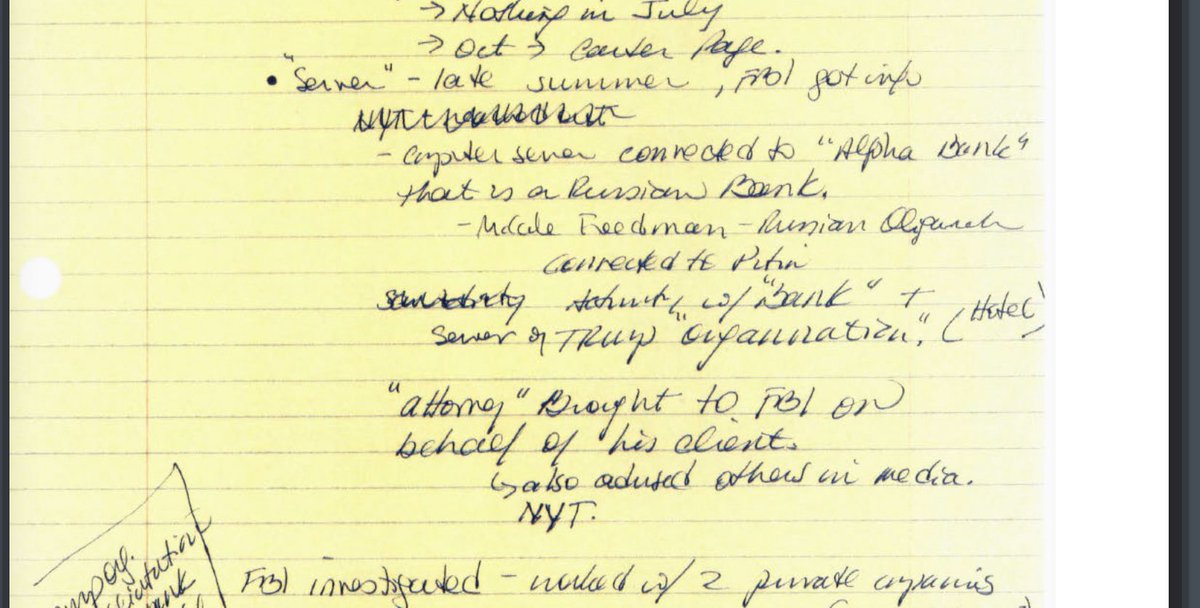 → Nothing in July
→ Oct → Carter Page.
• "Server" - late summer, FBI got info
- Computer server connected to "Alpha Bank"
that is a Russian Bank.
- Freedman - Russian Oligarch
connected to Putin
activity w/ "Bank" +
server of TRUMP "organization". (Hotel)
"attorney" Brought to FBI on
behalf of his client.
↳ also advised others in media.
NYT.
FBI investigated - worked w/ 2 private companies